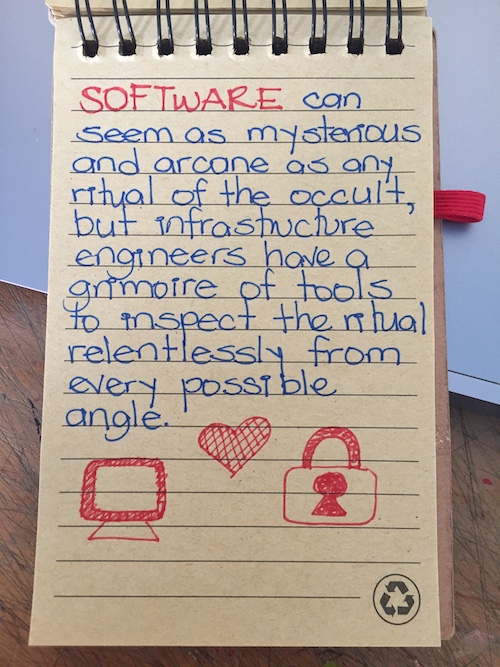 SOFTWARE can
seem as mysterious
and arcane as any
ritual of the occult,
but infrastructure
engineers have a
grimoire of tools
to inspect the ritual
relentlessly from
every possible
angle.